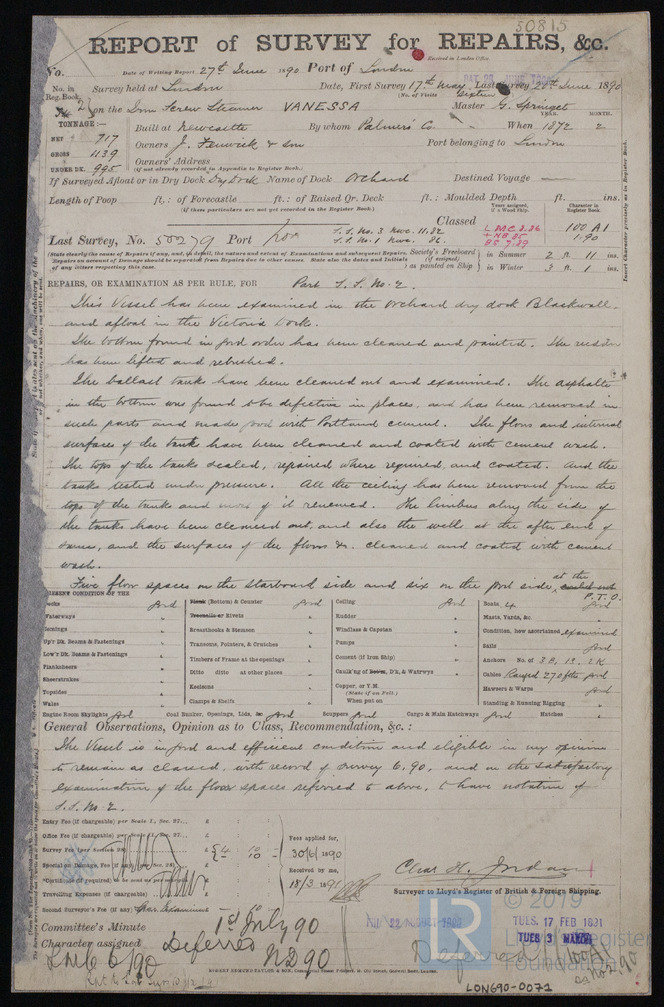 50815
REPORT of SURVEY for REPAIRS, &c.
Received in London Office
No. Date of Writing Report 27th June 1890 Port of London
No. in Reg. Book. Survey held at London Date, First Survey 17th May, Last Survey 20th June 1890
(No. of Visits Sixteen
on the Iron Screw Steamer VANESSA Master G. Springet
TONNAGE:— YEAR. MONTH.
NET 717 Built at Newcastle By whom Palmers Co. When 1872 2
GROSS 1139 Owners J. Fenwick & Son Port belonging to London
UNDER DK. 995 Owners' Address
(if not already recorded in Appendix to Register Book.)
If Surveyed Afloat or in Dry Dock Dry Dock Name of Dock Orchard Destined Voyage
Length of Poop ft.: of Forecastle ft.: of Raised Qr. Deck ft.: Moulded Depth ft. ins.
(If these particulars are not yet recorded in the Register Book.)
Years assigned, if a Wood Ship.
Character in Register Book.
Classed
Last Survey, No. 50279 Port Lon S.S. No. 3 Nwc. 11.82
S.S. No. 1 Nwc. 86.
L.M.C. 2.86
+ NB 85
BS 7.89
100 A1
1.90
Society's Freeboard (if assigned) as painted on Ship
in Summer 2 ft 11 ins.
in Winter 3 ft 1 ins.
REPAIRS, OR EXAMINATION AS PER RULE, FOR Part S.S. No. 2.
This Vessel has been examined in the Orchard dry dock Blackwall
and afloat in the Victoria Dock.
The bottom found in good order has been cleaned and painted. The rudder
has been lifted and rebushed.
The ballast tanks have been cleaned out and examined. The asphalte
in the bottom was found to be defective in places, and has been removed in
such parts and made good with Portland cement. The floors and internal
surfaces of the tanks have been cleaned and coated with cement wash.
The tops of the tanks scaled, repaired where required, and coated. And the
tanks tested under pressure. All the ceiling has been removed from the
tops of the tanks and most of it renewed. The limbers along the side of
the tanks have been cleaned out, and also the well at the after end of
same, and the surfaces of the floors &c. cleaned and coated with cement
wash.
Five floor spaces on the starboard side and six on the port side, at the
P.T.O.
PRESENT CONDITION OF THE
Decks good
Waterways "
Coamings "
Up'r Dk. Beams & Fastenings "
Low'r Dk. Beams & Fastenings "
Planksheers "
Sheerstrakes "
Topsides "
Wales "
Plank (Bottom) & Counter good
Treenails or Rivets "
Breasthooks & Stemson "
Transoms, Pointers, & Crutches "
Timbers of Frame at the openings "
Ditto ditto at other places "
Keelsons "
Clamps & Shelfs "
Ceiling good
Rudder "
Windlass & Capstan "
Pumps "
Cement (if Iron Ship) "
Caulk'ng of Seams, D'k, & Watrwys "
Copper, or Y.M.
(State if on Felt.)
When put on
Boats 4 good
Masts, Yards, &c. "
Condition, how ascertained examined
Sails good
Anchors No. of 3B, 1S, 2K
Cables Ranged 270 fths good
Hawsers & Warps good
Standing & Running Rigging "
Engine Room Skylights good Coal Bunker, Openings, Lids, &c. good Scuppers good Cargo & Main Hatchways good Hatches "
General Observations, Opinion as to Class, Recommendation, &c.:
The Vessel is in good and efficient condition and eligible in my opinion
to remain as classed, with record of survey 6.90, and on the satisfactory
examination of the floor spaces referred to above, to have notation of
S.S. No 2.
Entry Fee (if chargeable) per Scale I., Sec. 27... £
Office Fee (if chargeable) per Scale II., Sec. 27... £
Survey Fee (per Section 28) £ 4 10
Special or Damage Fee (if any) (per Sec. 28) £
*Certificate (if required)
Travelling Expenses (if chargeable) £
Second Surveyor's Fee (if any)
Fees applied for,
30/6/1890
Received by me,
18/3/1891
Chas H. Jordan
Surveyor to Lloyd's Register of British & Foreign Shipping.
Committee's Minute 1st July 90
TUES. 17 FEB 1891
TUES 3 MARCH
Character assigned Deferred
ND 90
LMC 6/90
Deferred
100A1
No 2.90
© 2019
LR
Lloyd's Register
Foundation
LON690-0071